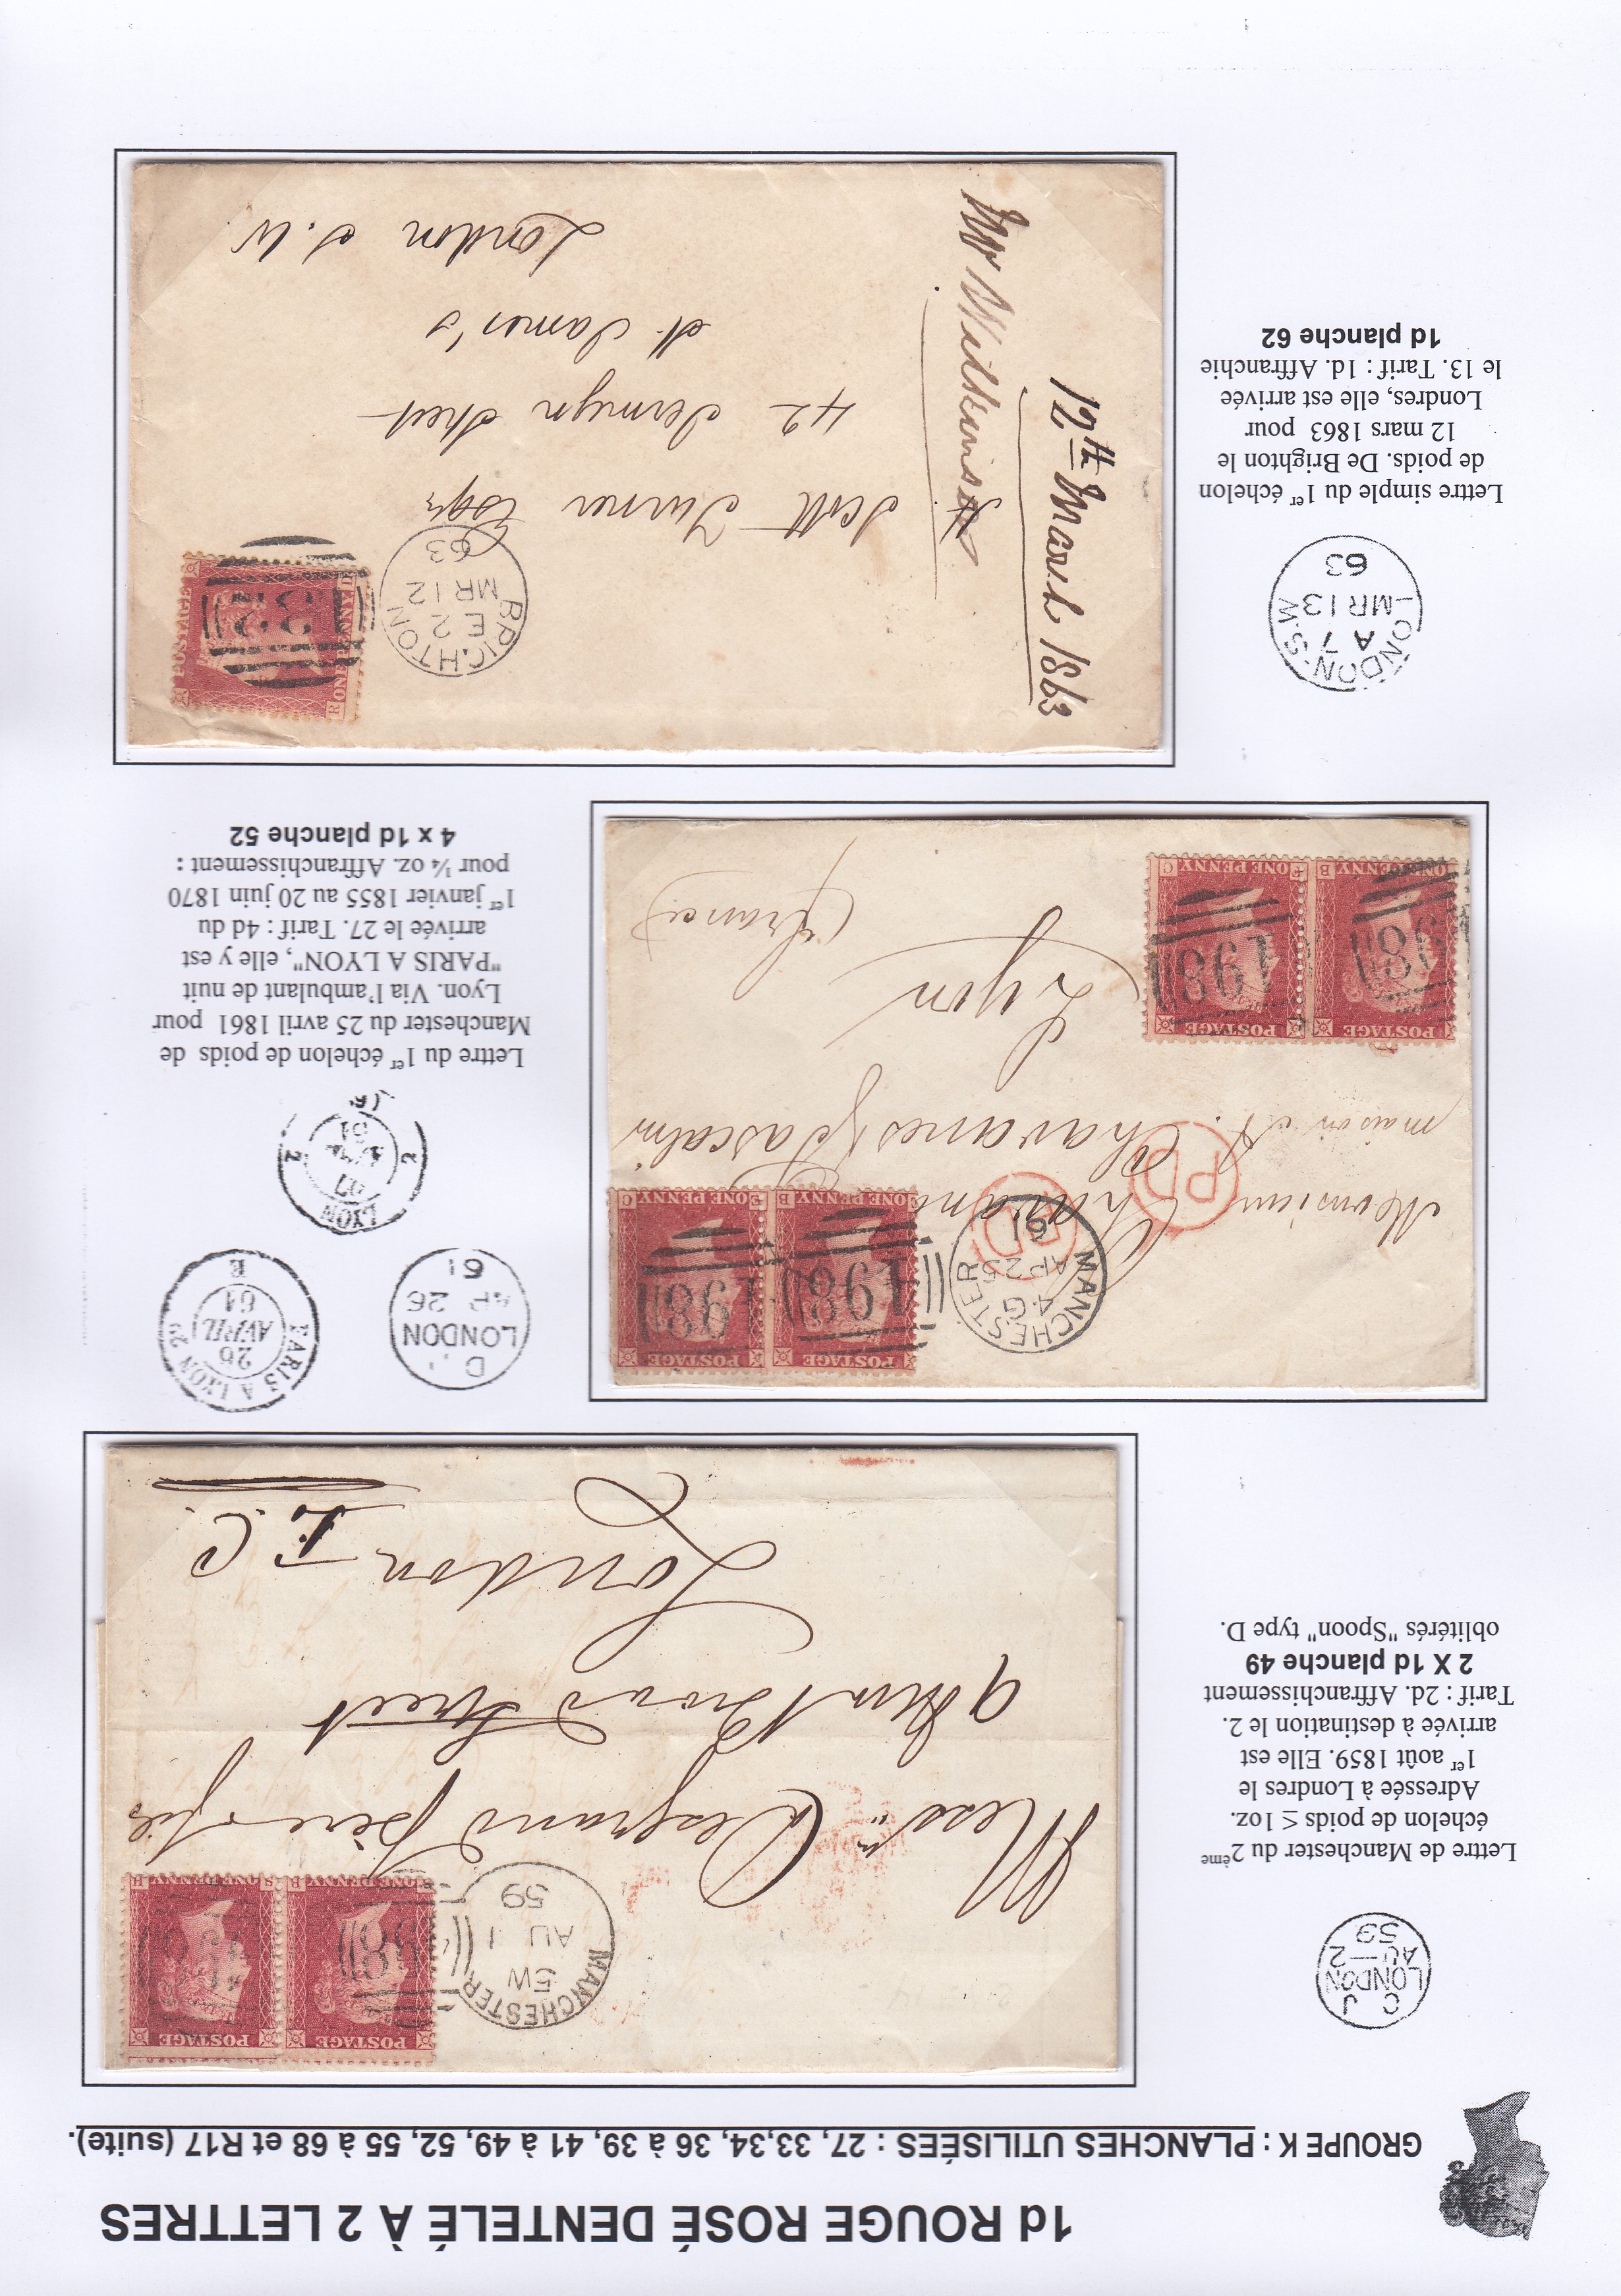 1d ROUGE ROSÉ DENTELÉ À 2 LETTRES
GROUPE K : PLANCHES UTILISÉES : 27, 33,34, 36 à 39, 41 à 49, 52, 55 à 68 et R17 (suite).
C J
LONDON
AU-2
59
Lettre de Manchester du 2ème
échelon de poids ≤ 1oz.
Adressée à Londres le
1er août 1859. Elle est
arrivée à destination le 2.
Tarif : 2d. Affranchissement
2 X 1d planche 49
oblitérés "Spoon" type D.
MANCHESTER
5W
AU 1
59
POSTAGE
ONE PENNY
POSTAGE
ONE PENNY
Messrs Desgrand Père & fils
9 Broad Street
London E.C.
MANCHESTER
4 G
AP 25
61
POSTAGE
ONE PENNY
POSTAGE
ONE PENNY
PD
PD
Monsieur
maison A. Chavanes
Lyon
(france)
POSTAGE
ONE PENNY
POSTAGE
ONE PENNY
LONDON
AP 26
61
PARIS A LYON
26
AVRIL
61
E
LYON
27
61
Lettre du 1er échelon de poids de
Manchester du 25 avril 1861 pour
Lyon. Via l'ambulant de nuit
"PARIS A LYON", elle y est
arrivée le 27. Tarif : 4d du
1er janvier 1855 au 20 juin 1870
pour ¼ oz. Affranchissement :
4 x 1d planche 52
LONDON-S.W
A 7
MR 13
63
Lettre simple du 1er échelon
de poids. De Brighton le
12 mars 1863 pour
Londres, elle est arrivée
le 13. Tarif : 1d. Affranchie
1d planche 62
12th March 1863
Mr Wilkinson
BRIGHTON
E 2
MR 12
63
POSTAGE
ONE PENNY
132
Scott Turner Esqr
42 Jermyn Street
St James's
London S.W